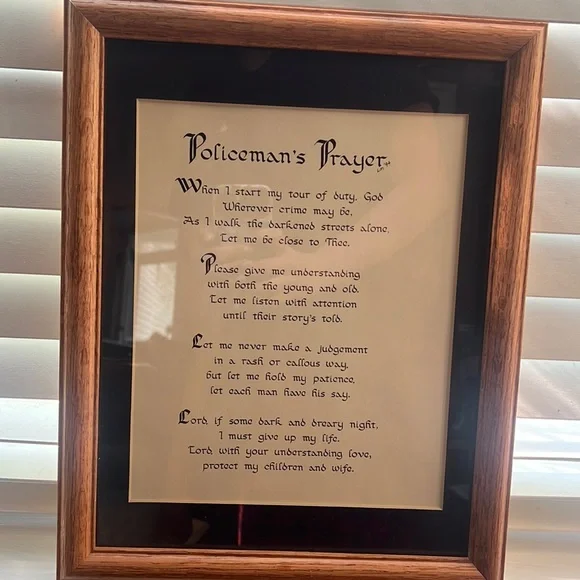 Policeman's Prayer
When I start my tour of duty, God
Wherever crime may be,
As I walk the darkened streets alone,
Let me be close to Thee.
Please give me understanding
with both the young and old.
Let me listen with attention
until their story's told.
Let me never make a judgement
in a rash or callous way,
but let me hold my patience,
let each man have his say.
Lord, if some dark and dreary night,
I must give up my life.
Lord, with your understanding love,
protect my children and wife.